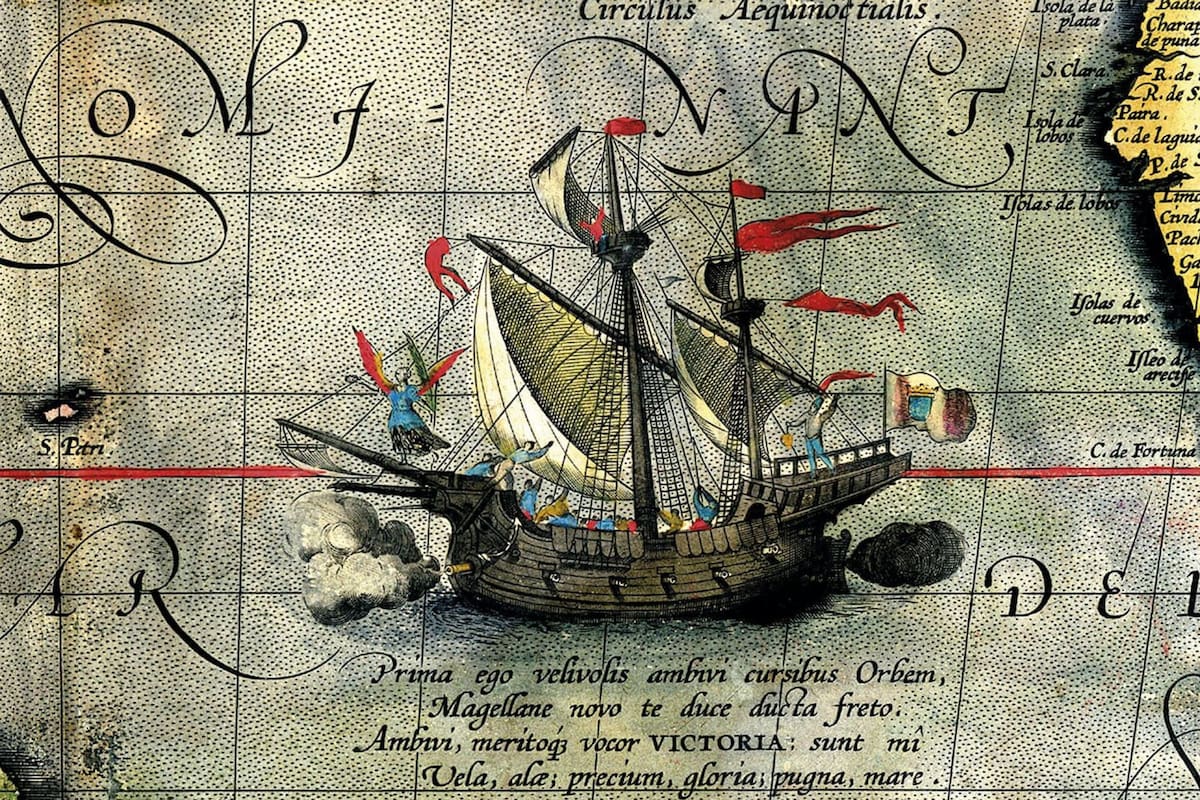 Circulus Aequinoctialis.
NOMI=NANT
Isola de la
plata.
Charap
de puna
S. Clara.
R. de
R. de S.
Isola de
lobos
Paita.
C. de laguia
P. de
Isolas de lobos
Lima
Civid
Pach
Ga
Isolas de
cuervos
Isleo de
arecife
S. Petri.
C. de Fortuna
AR DEL
Prima ego velivolis ambivi cursibus Orbem,
Magellane novo te duce ducta freto.
Ambivi, meritoqꝫ vocor VICTORIA: sunt mî
Vela, alæ; precium, gloria; pugna, mare.